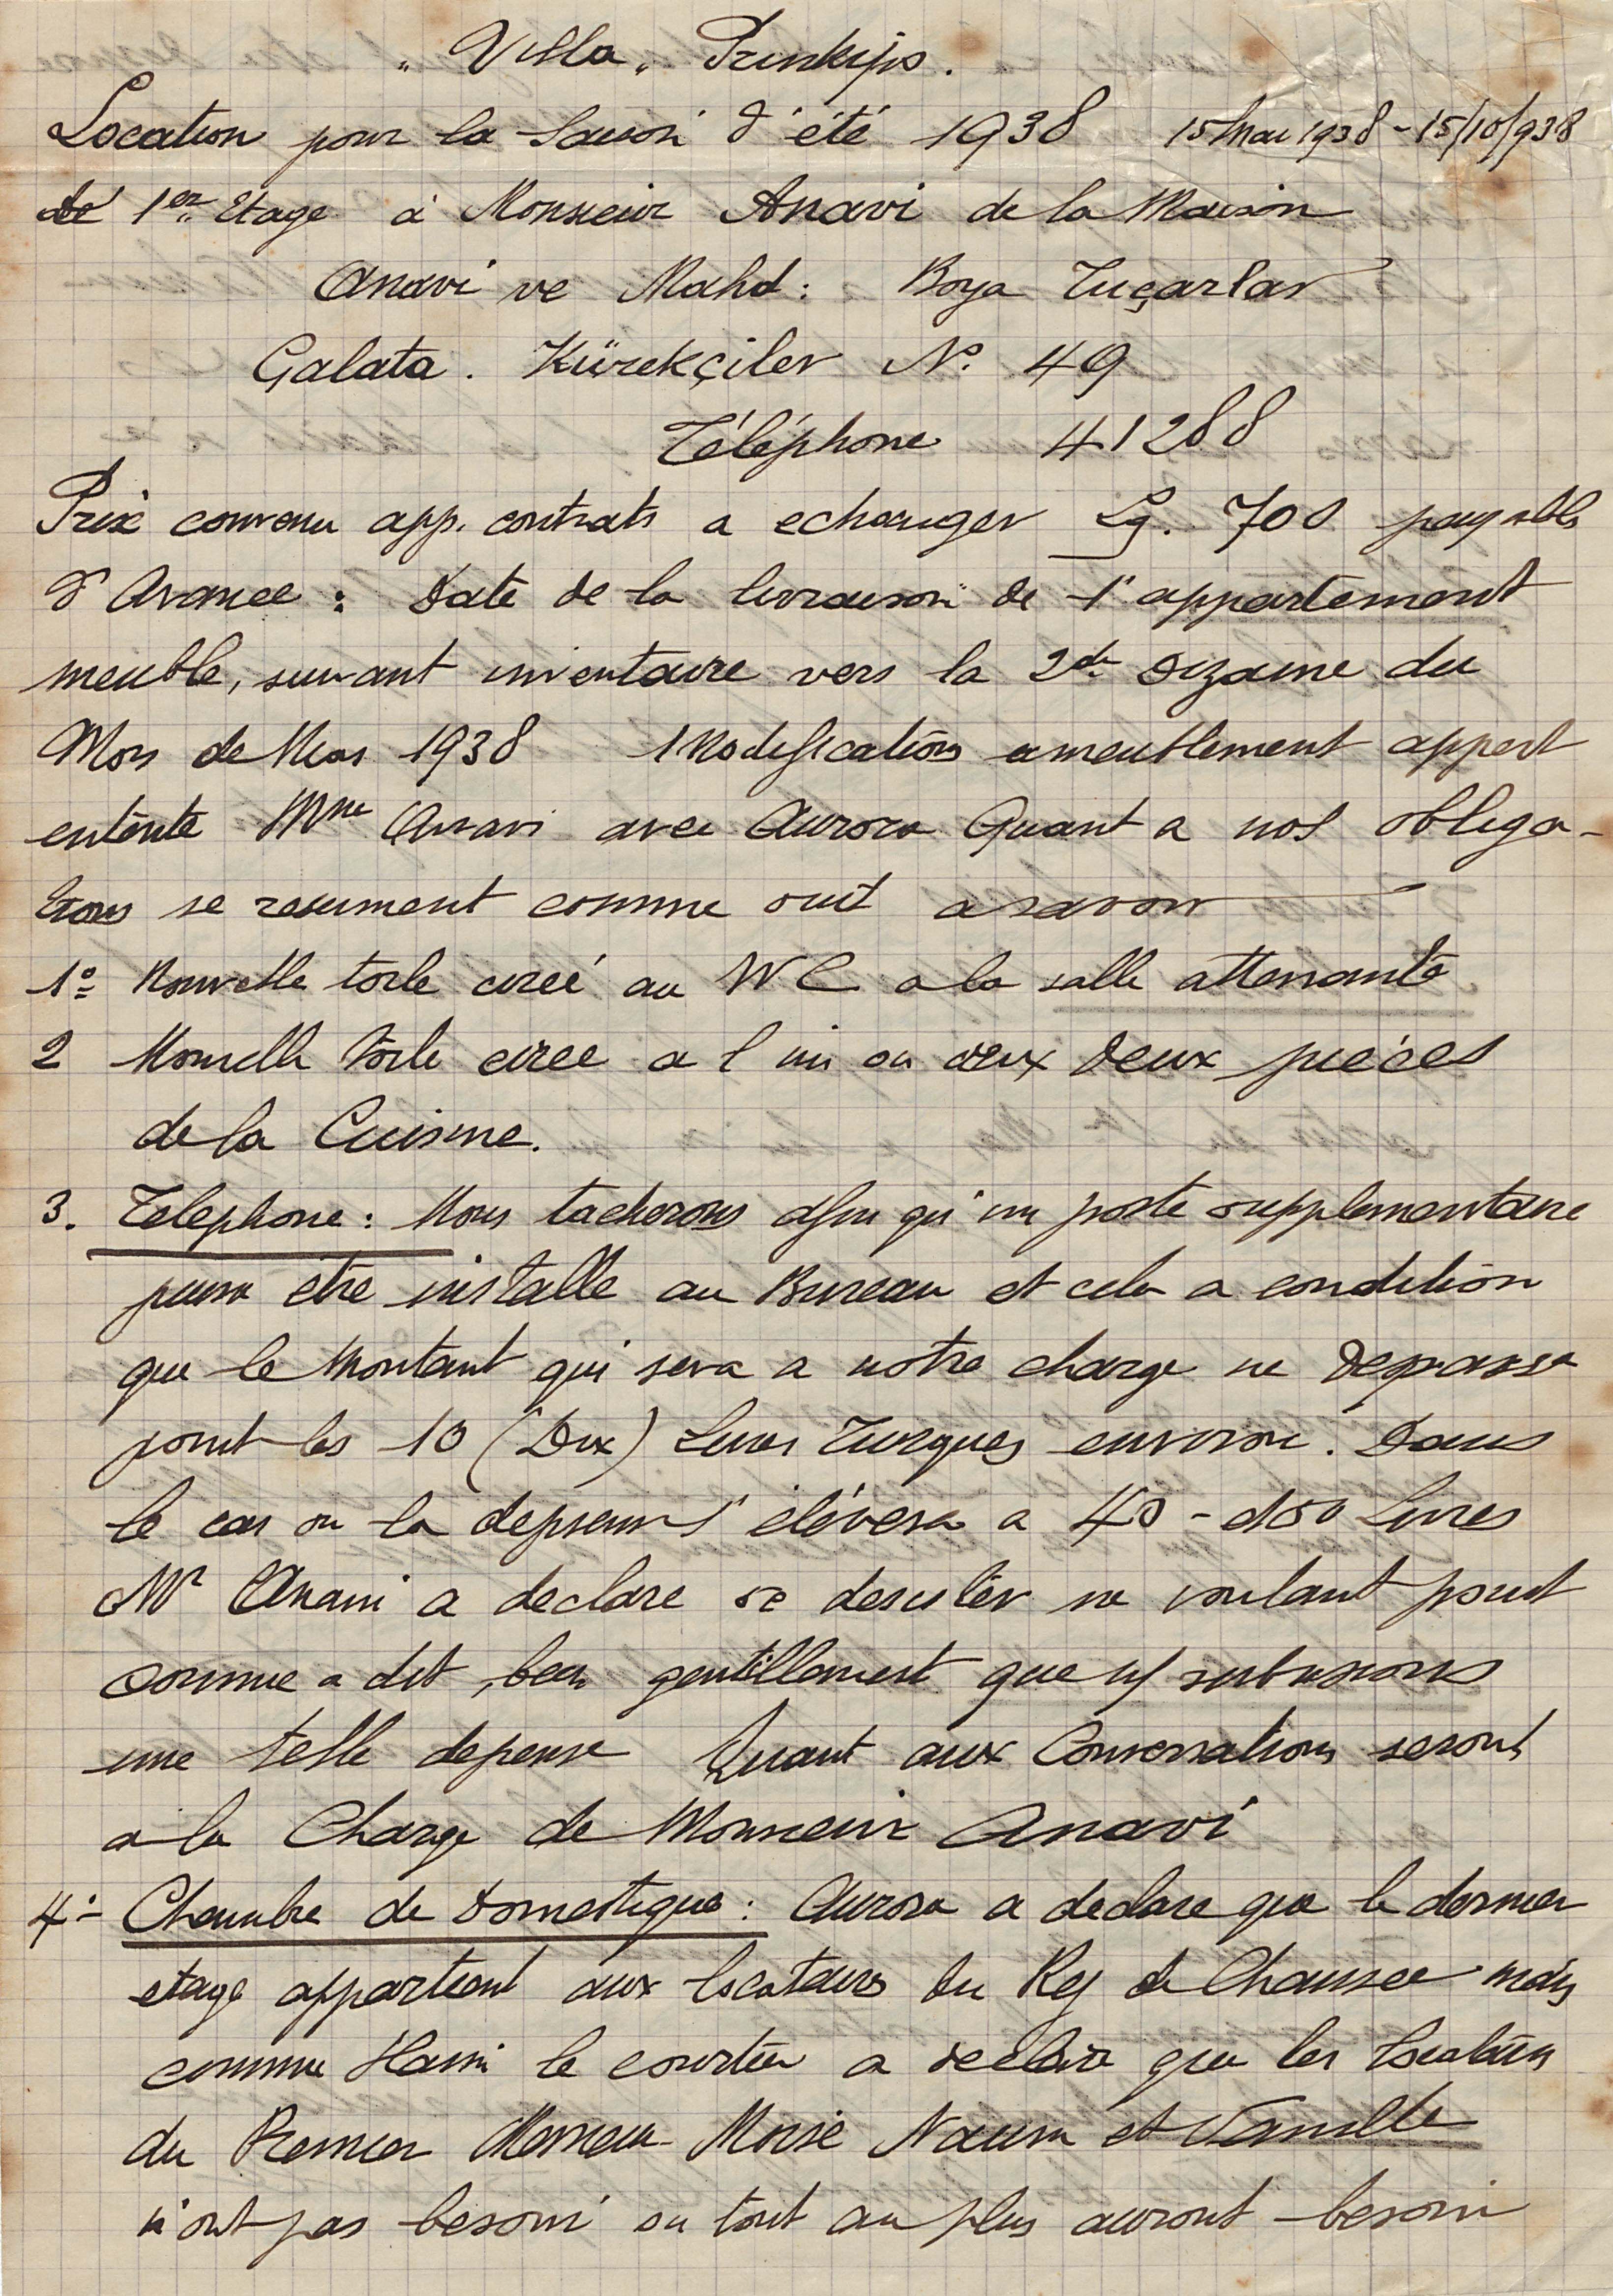 "Villa" Prinkipo.
Location pour la Saison d'été 1938 15 Mai 1938 - 15/10/938
de 1er Etage à Monsieur Anavi de la Maison
Anavi ve Mahd: Boya Tuçarlar
Galata. Kürekçiler No. 49
Téléphone 41288
Prix convenu app. contrats a echanger Lq. 700 payable
d'Avance : Date de la livraison de l'appartement
meuble, suivant inventaire vers la 2de dizaine du
Mois de Mars 1938 Modifications ameublement appart
entente Mme Anavi avec Aurora Quant a nos obliga-
tions se resument comme suit a savoir
1º= Nouvelle toile cireé au WC a la salle attenante
2 Nouvelle toile ciree a l'un ou aux deux pièces
de la Cuisine.
3. Telephone : Nous tacherons afin qu'un poste supplementaire
puisse etre installe au Bureau et cela a condition
que le Montant qui sera a notre charge ne depasse
point les 10 (Dix) Livres Turques environ. Dans
le cas ou la depense s'élévera a 40 - 50 Livres
Mr Anavi a declare se desister ne voulant point
comme a dit, bien gentillement que n/ subissions
une telle depense Quant aux Conversations seront
a la Charge de Monsieur Anavi
4- Chambre de domestique : Aurora a declare que le dernier
etage appartient aux locataires du Rez de Chaussee mais
comme Haim le courtier a declare que les locataires
du Premier Monsieur Moise Naum et Famille
n'ont pas besoin ou tout au plus auront besoin